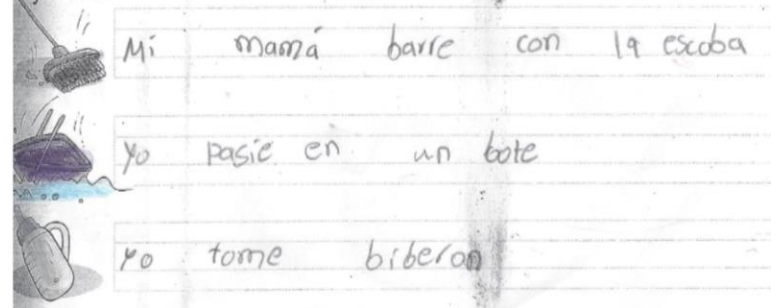 Mi mamá barre con la escoba
Yo pasie en un bote
Yo tome biberon